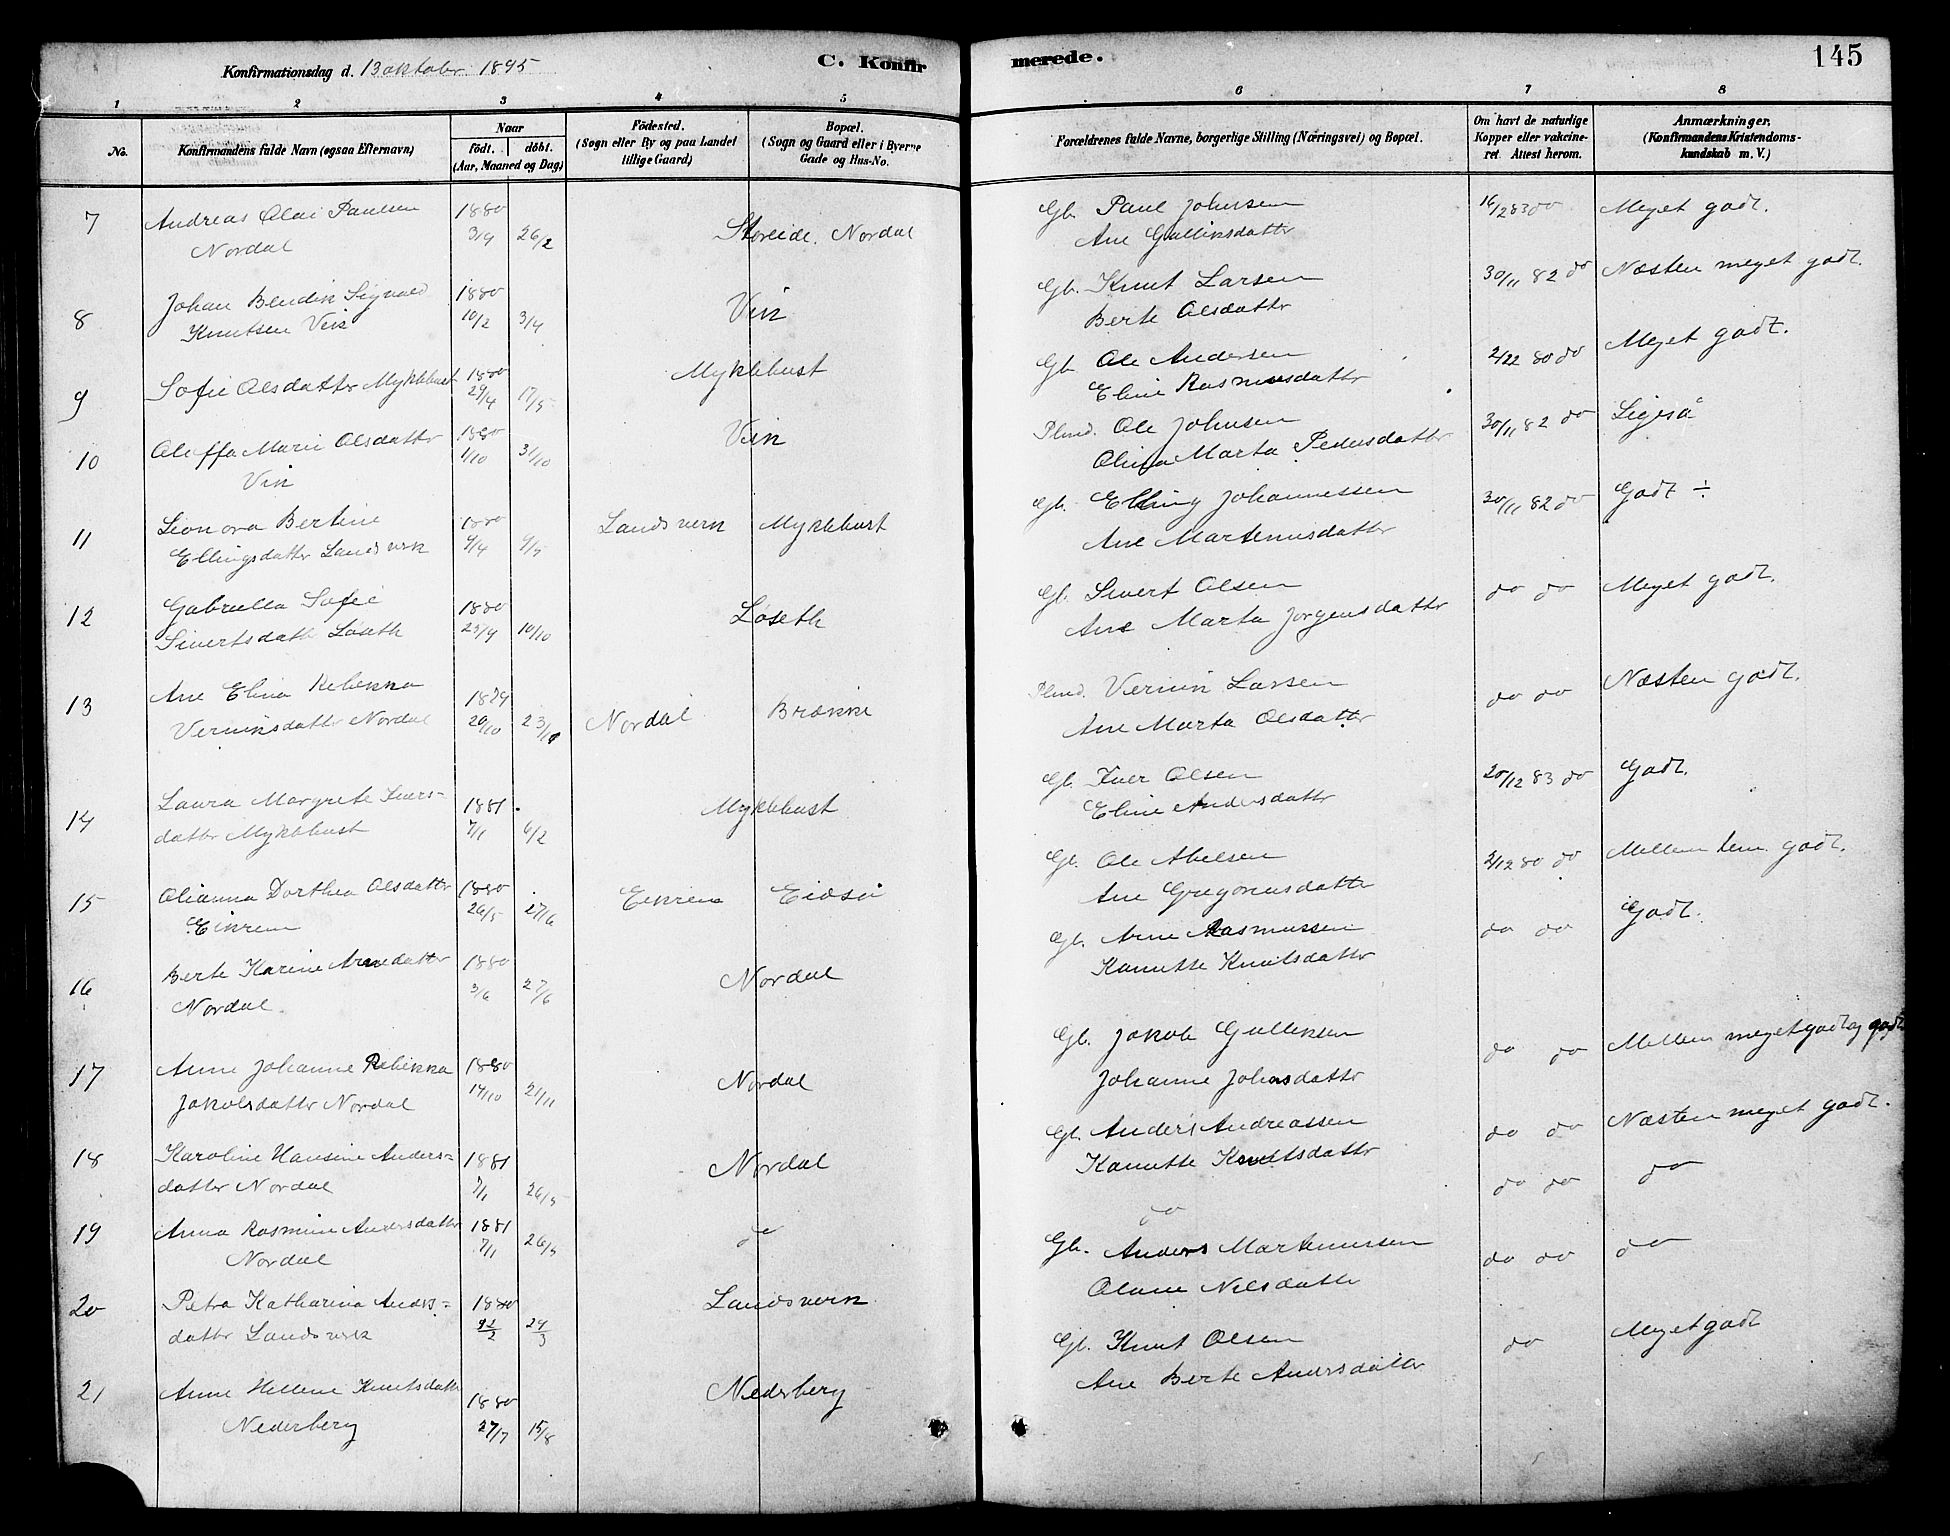 Konfirmationsdag d. 13 oktober 1895
C. Konfirmerede.
145
1 2 3 4 5 6 7 8
No.
Konfirmandens fulde Navn (ogsaa Efternavn)
Naar
Födt. döbt.
(Aar, Maaned og Dag)
Födested.
(Sogn eller By og paa Landet
tillige Gaard)
Bopæl.
(Sogn og Gaard eller i Byerne
Gade og Hus-No.
Forældrenes fulde Navne, borgerlige Stilling (Næringsvei) og Bopæl.
Om havt de naturlige
Kopper eller vakcine-
ret. Attest herom.
Anmærkninger.
(Konfirmandens Kristendoms-
kundskab m. V.)
7 Andreas Olai Paulsen 1880 Storeide. Nordal Gb. Paul Johnsen 16/2 83 do Meget godt.
Nordal 26/2 Ane Gulliksdattr
8 Johan Bendik Sigvald 1880 Vik Gb. Knut Larsen 30/11 82 do Næsten meget godt.
Knutsen Vik 10/2 3/4 Berte Olsdattr
9 Sofie Olsdattr Myklebust 1880 Myklebust Gb. Ole Andersen 80 do Meget godt.
29/4 17/5 Eline Rasmusdattr
10 Oluffa Marie Olsdattr 1880 Vik Plmd. Ole Johnsen 30/11 82 do Ligeså
Vik 1/10 31/10 Marta Pedersdattr
11 Leonora Bertine 1880 Landsverk Myklebust Gb. Elling Johannessen 30/11 82 do Godt ÷
Ellingsdattr Landsverk 9/4 9/5 Ane Martinusdattr
12 Gabriella Sofie 1880 Løseth Gb. Sivert Olsen do do Meget godt.
Sivertsdattr Løseth 10/10 Ane Marta Jørgensdattr
13 Ane Elina Rebekka 1879 Nordal Brække Plmd. Vernik Larsen do do Næsten godt.
Verniksdattr Nordal 20/10 Ane Marta Olsdattr
14 Laura Margrete Ivers- 1881 Myklebust Gb. Iver Olsen 20/12 83 do Godt.
dattr Myklebust 7/1 6/2 Eline Andersdattr
15 Olianna Dorthea Olsdattr 1880 Eikrem Eidså Gb. Ole Abelsen 2/12 80 do Mellem tem. godt.
Eikrem 26/5 27/6 Ane Gregoriusdattr
16 Berte Karine Arnedattr 1880 Nordal Gb. Arne Rasmussen do do Godt.
Nordal. 3/6 27/6 Kanutte Knutsdattr
17 Anne Johanne Rebekka 1880 Nordal Gb. Jakob Gulliksen do do Mellem meget godt og godt
Jakobsdattr Nordal 14/10 21/11 Johanne Johnsdattr
18 Karoline Hansine Anders- 1881 Nordal Gb. Anders Andreassen do do Næsten meget godt.
dattr Nordal 7/1 26/5 Kanutte Knutsdattr
19 Anna Rasmine Andersdattr 1881 do do do do do
Nordal 7/1 26/5
20 Petra Katharina Anders- 1880 Landsverk Gb. Anders Martinussen do do do
dattr Landsverk 29/3 Olave Nilsdattr
21 Anne Hellene Knutsdattr 1880 Nederberg Gb. Knut Olsen do Meget godt
Nederberg 27/7 15/8 Ane Berte Andersdattr